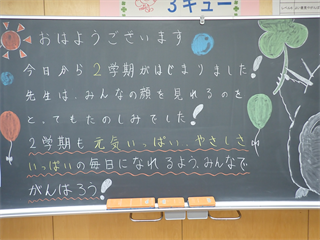 3キュー
おはようございます
今日から2学期がはじまりました!
先生は、みんなの顔を見れるのを
とってもたのしみでした!
2学期も元気いっぱい、やさしさ
いっぱいの毎日になれるよう、みんなで
がんばろう!